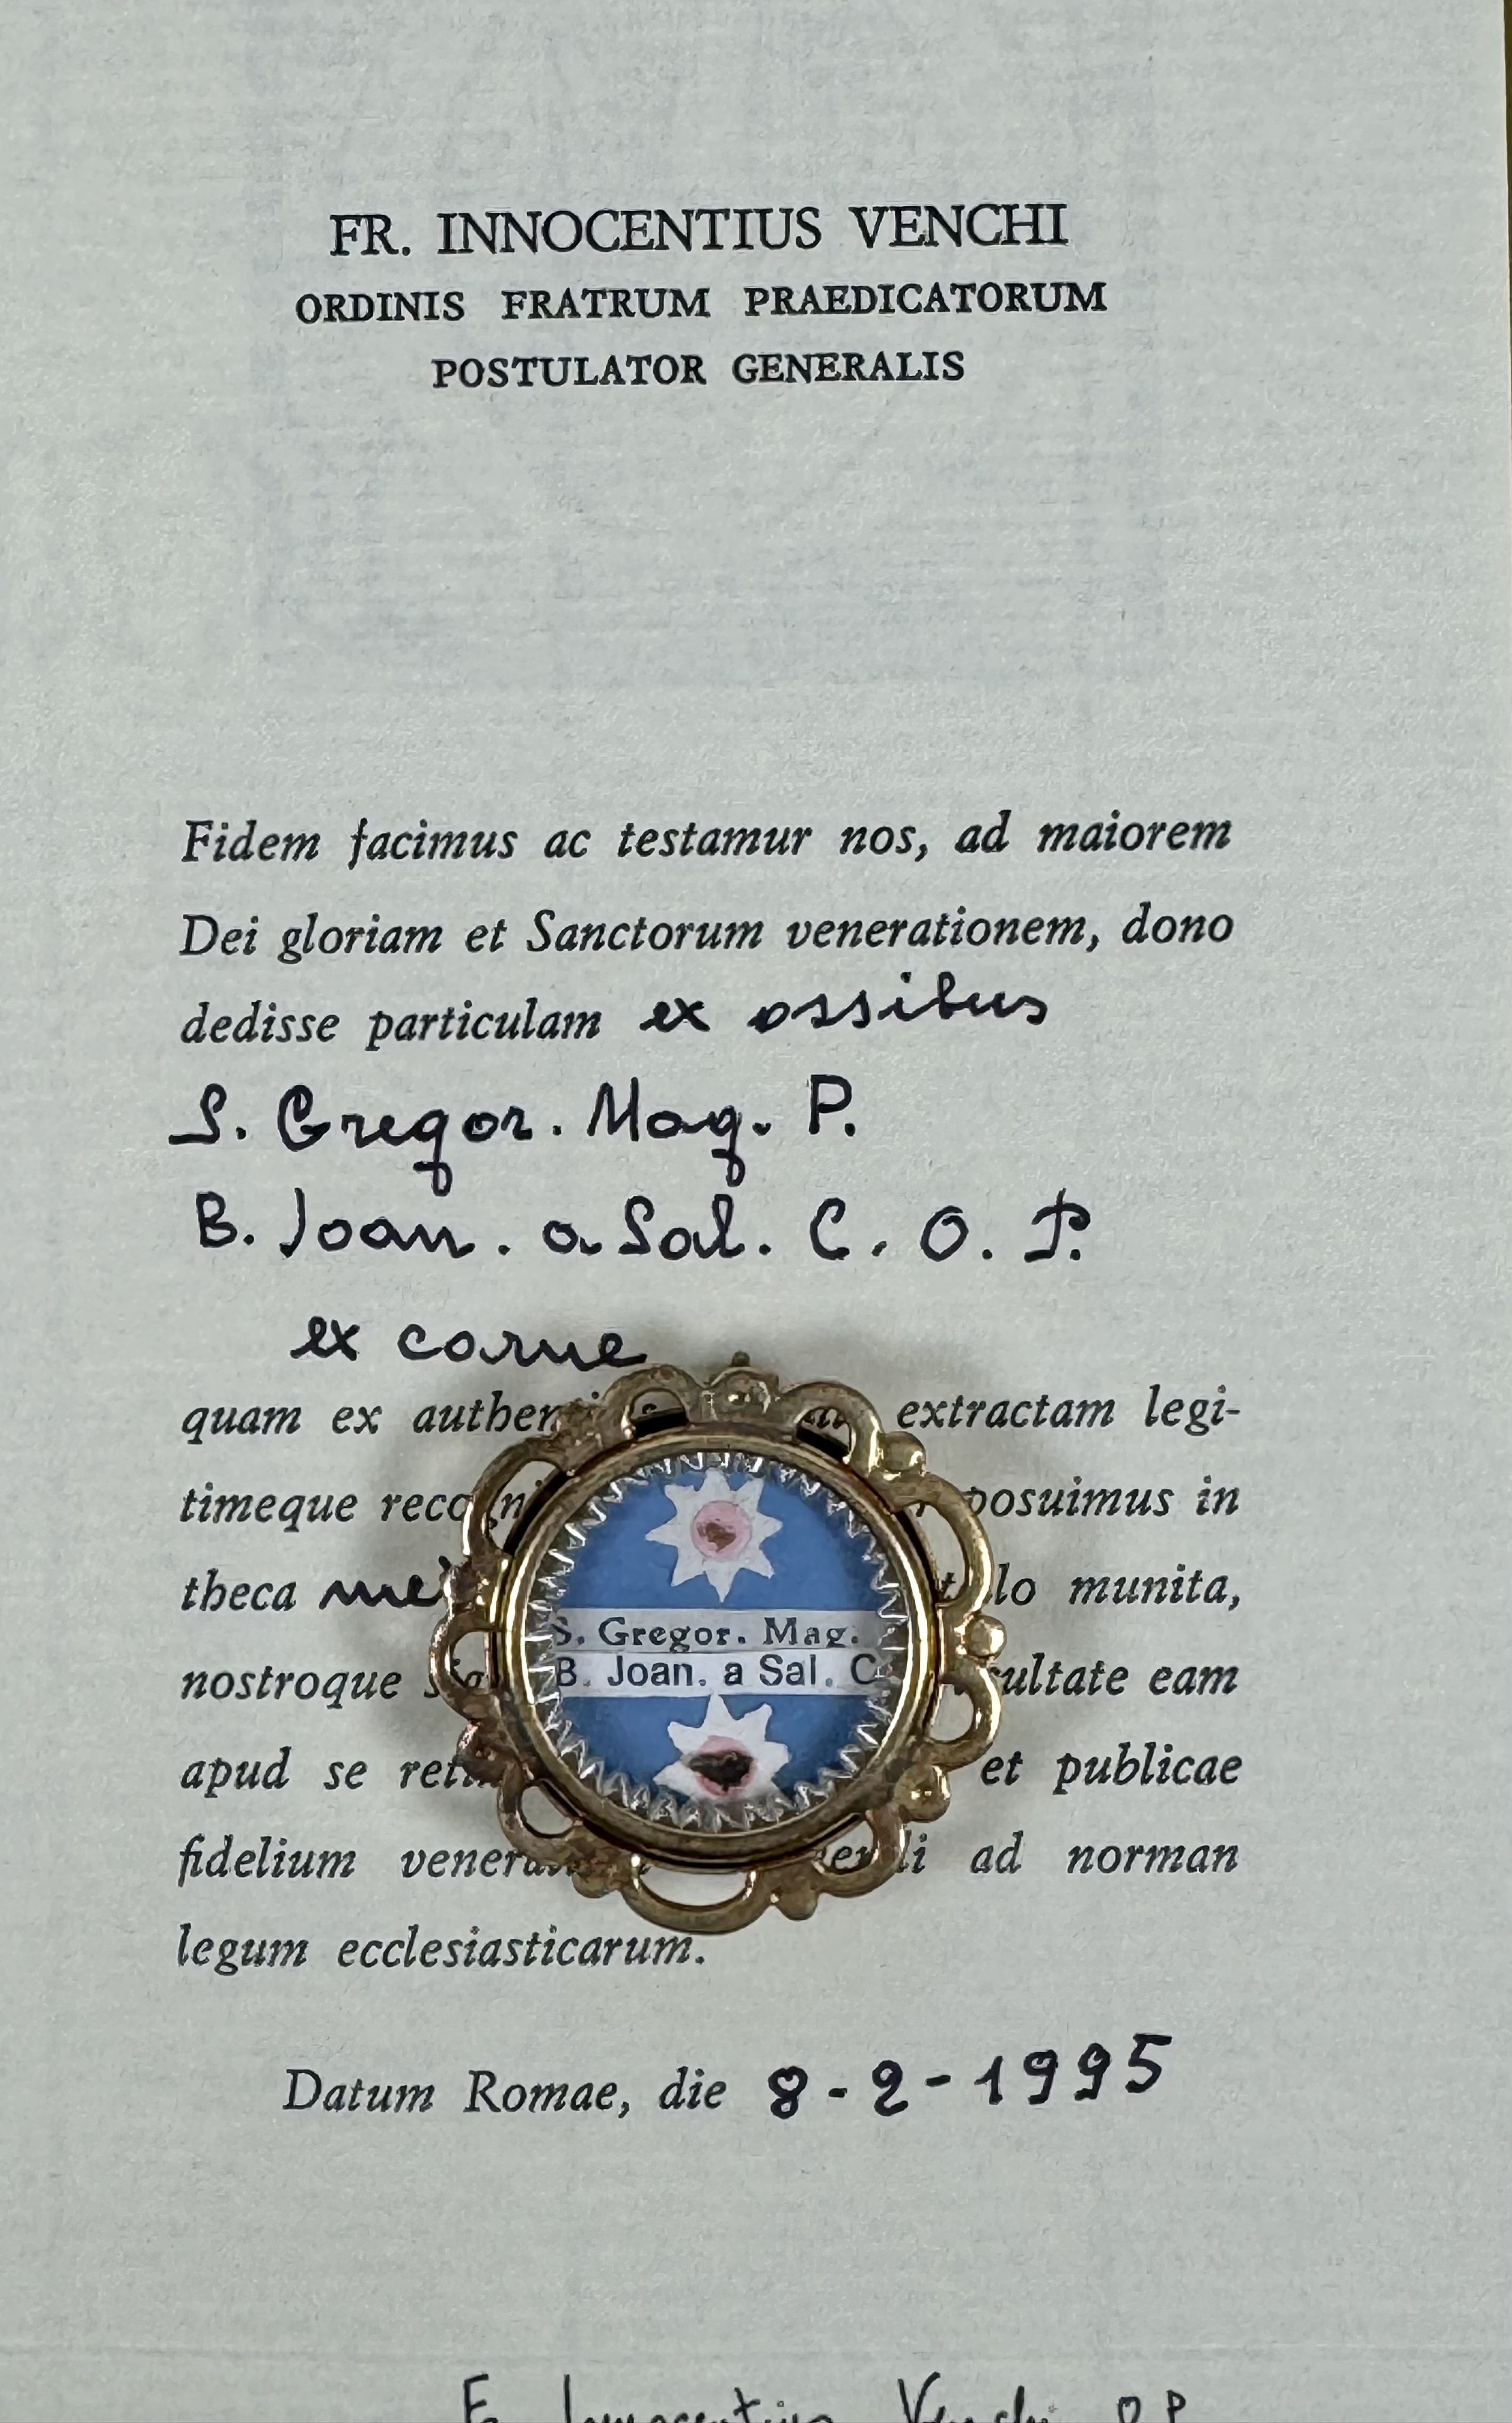 FR. INNOCENTIUS VENCHI
ORDINIS FRATRUM PRAEDICATORUM
POSTULATOR GENERALIS
Fidem facimus ac testamur nos, ad maiorem
Dei gloriam et Sanctorum venerationem, dono
dedisse particulam ex ossibus
S. Gregor. Mag. P.
B. Joan. a Sal. C. O. P.
ex carne
quam ex extractam legi-
timeque in
theca munita,
nostroque eam
apud se et publicae
fidelium ad norman
legum ecclesiasticarum.
S. Gregor. Mag.
B. Joan. a Sal. C
Datum Romae, die 8-2-1995
Fr. Innocentius Venchi O.P.